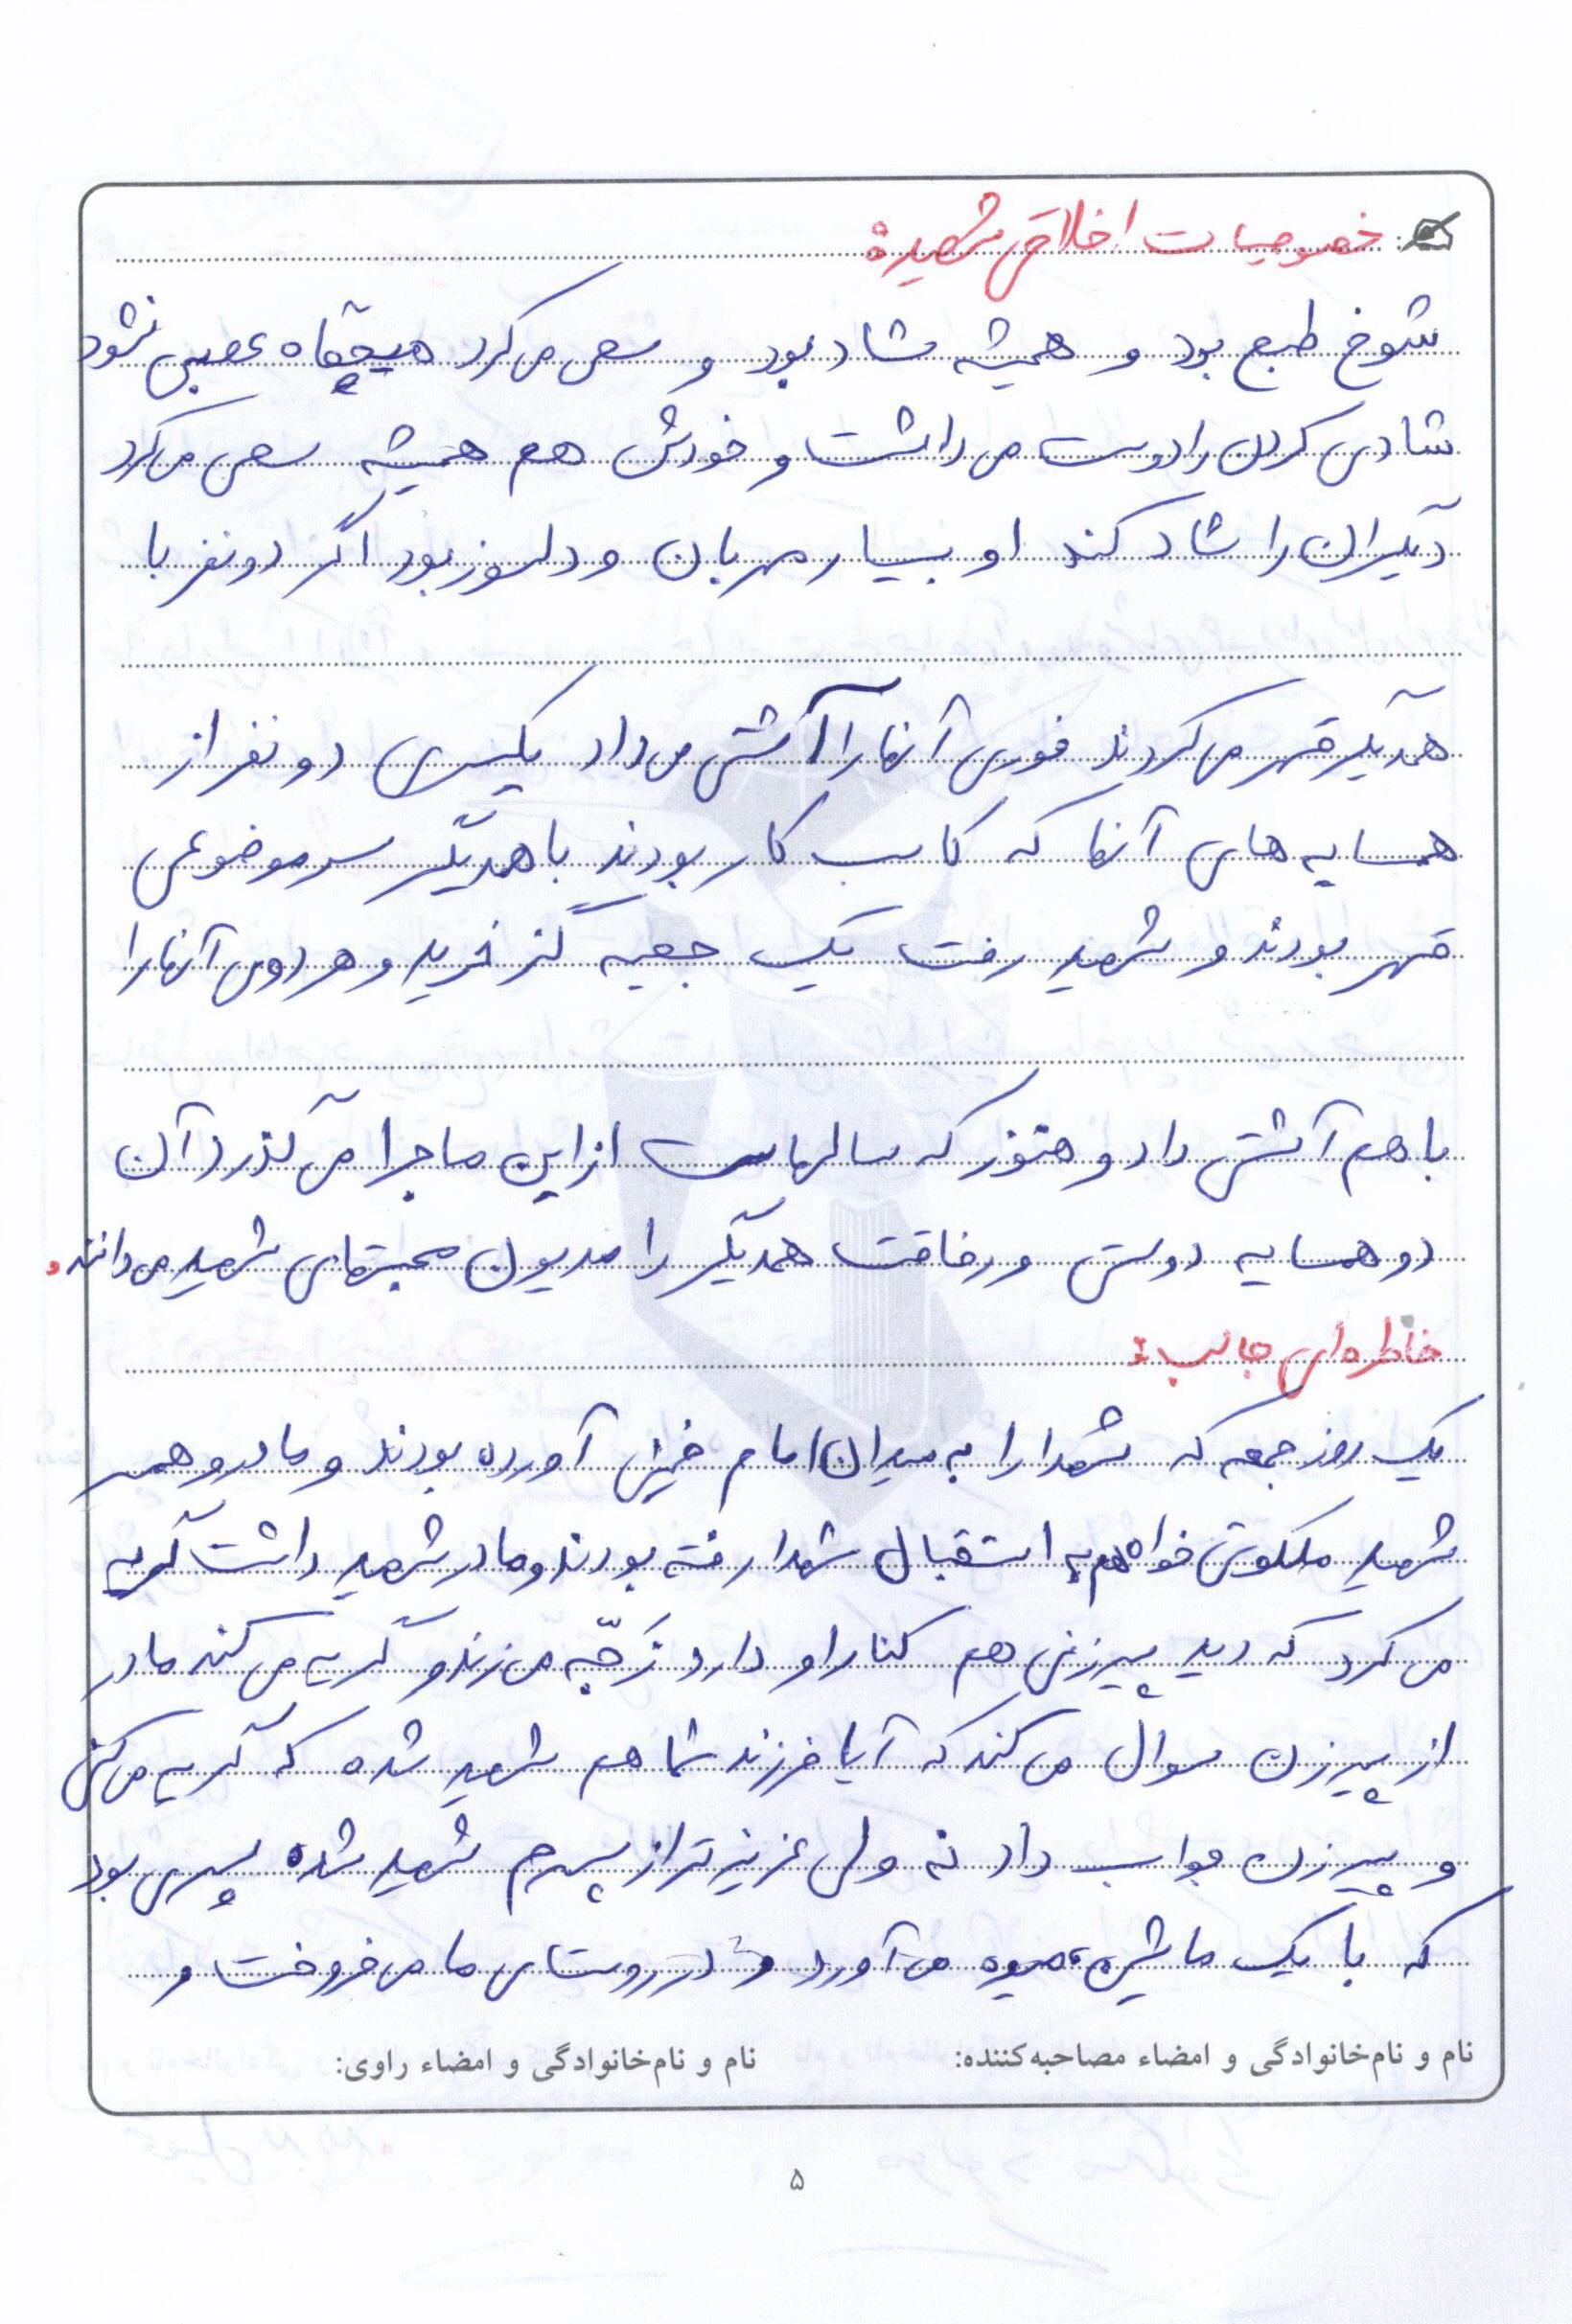 خصوصیات اخلاقی شهید:
شوخ طبع بود و همیشه شاد بود و سعی می کرد هیچگاه عصبی نشود
شادی کردن را دوست می داشت و خودش هم همیشه سعی می کرد
دیگران را شاد کند او بسیار مهربان و دلسوز بود اگر دو نفر با
همدیگر قهر می کردند فوری آنها را آشتی می داد یکسری دو نفر از
همسایه های آنها که کاسب کار بودند با همدیگر سر موضوعی
قهر بودند و شهید رفت یک جعبه گز خرید و هر دوی آنها را
با هم آشتی داد و هنوز که سالهاست از این ماجرا می گذرد آن
دو همسایه دوستی و رفاقت همدیگر را مدیون محبتهای شهید می دانند.
خاطره ای جالب:
یک روز جمعه که شهدا را به میدان امام خمینی آورده بودند و مادر و همسر
شهید ملکوتی خواه هم به استقبال شهدا رفته بودند و مادر شهید داشت گریه
می کرد که دید پیرزنی هم کنار او دارد زَجّه می زند و گریه می کند مادر
از پیرزن سوال می کند که آیا فرزند شما هم شهید شده که گریه می کنی
و پیرزن جواب داد نه ولی عزیزتر از پسرم شهید شده پسری بود
که با یک ماشین میوه می آورد و در روستای ما می فروخت و
نام و نام‌خانوادگی و امضاء مصاحبه‌کننده: نام و نام‌خانوادگی و امضاء راوی:
۵